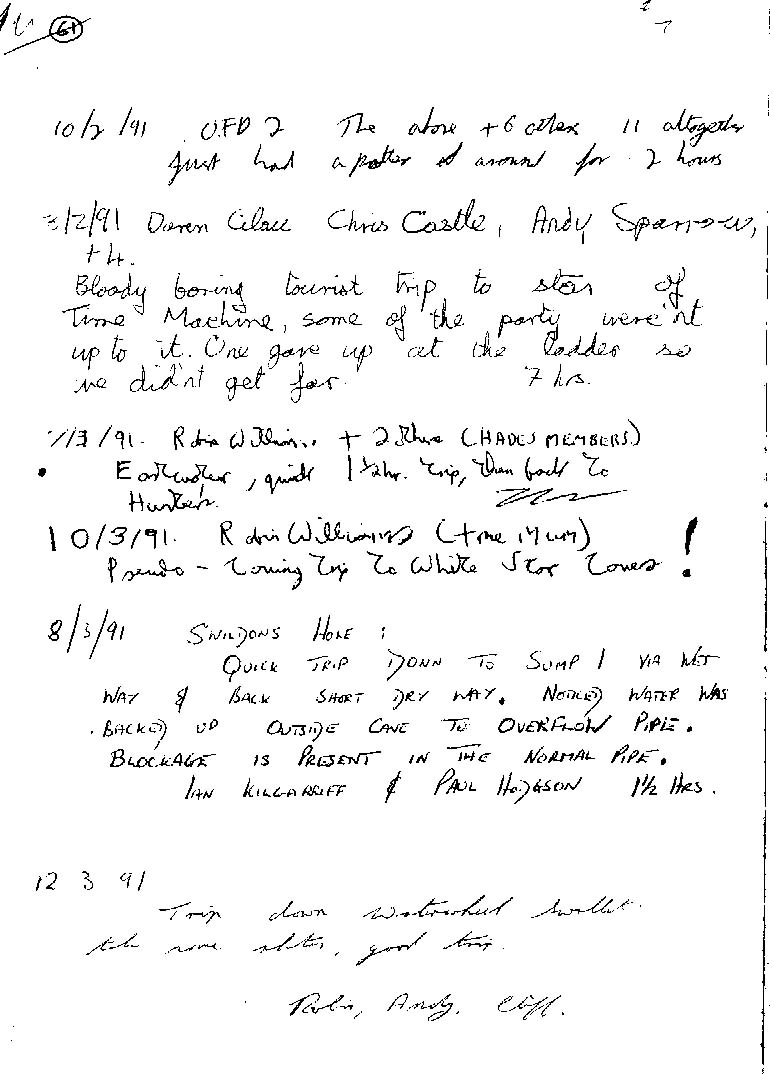 61
10/2/91 OFD 2 The above +6 others 11 altogether
Just had a potter around for 2 hours
3/2/91 Daren Cilau Chris Castle, Andy Sparrow,
+4.
Bloody boring tourist trip to start of
Time Machine, some of the party were'nt
up to it. One gave up at the ladder so
we did'nt get far. 7 hrs.
/3/91. Robin Williams + 2 (HADES MEMBERS)
Eastwater, quick 1½hr. trip, then back to
Hunters.
10/3/91. Robin Williams (+me Mum) !
Pseudo - Caving Trip To White Scar Caves
8/3/91 SWILDONS HOLE :
QUICK TRIP DOWN TO SUMP 1 VIA WET
WAY & BACK SHORT DRY WAY. NOTICED WATER WAS
BACKED UP OUTSIDE CAVE TO OVERFLOW PIPE.
BLOCKAGE IS PRESENT IN THE NORMAL PIPE.
IAN KILGARRIFF & PAUL HODGSON 1½ HRS.
12 3 91
Trip down Waterwheel Swallet.
some, good trip.
Robin, Andy, Cliff.